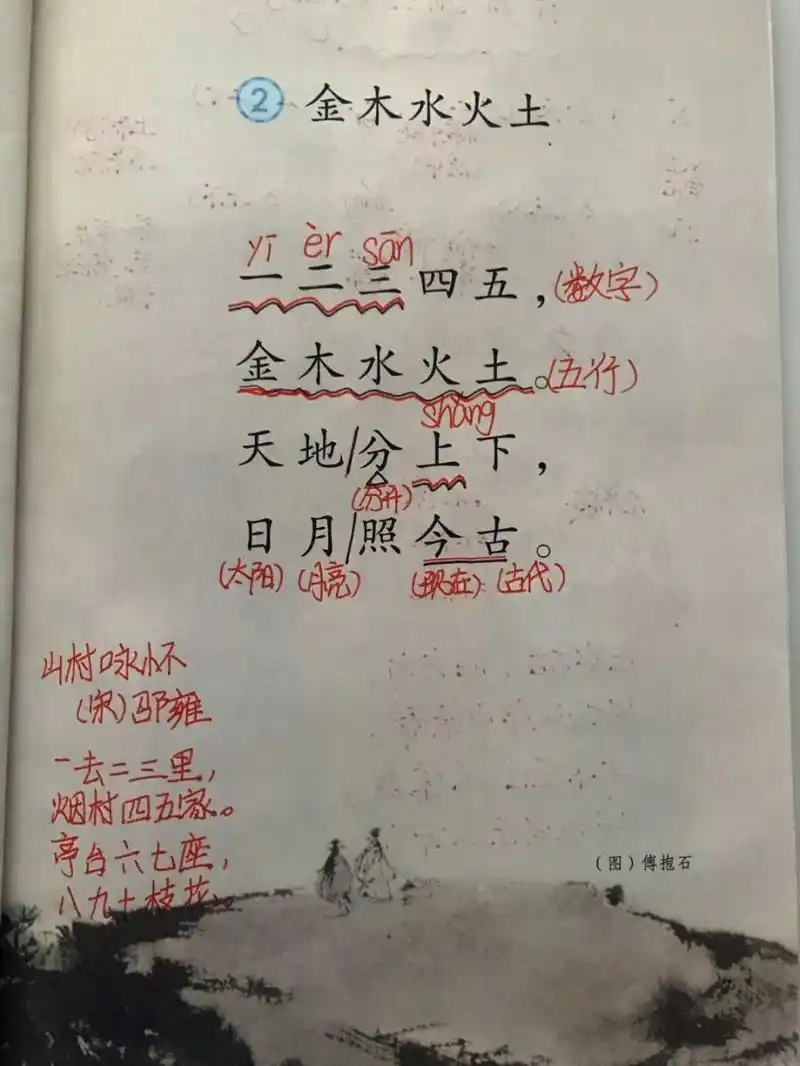 2 金木水火土
yī èr sān
一二三四五，(数字)
金木水火土。(五行)
shàng
天地/分上下，
(分开)
日月/照今古。
(太阳) (月亮) (现在) (古代)
山村咏怀
(宋) 邵雍
一去二三里，
烟村四五家。
亭台六七座，
八九十枝花。
（图）傅抱石